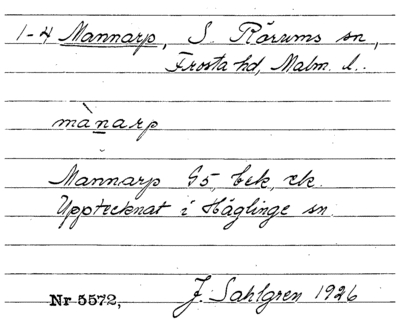 1-4 Mannarp, S. Rörums sn,
Frosta hd, Malm. l.
mànarp
Mannarp G5, Eek, ek.
Upptecknat i Häglinge sn
Nr 5572, J. Sahlgren 1926